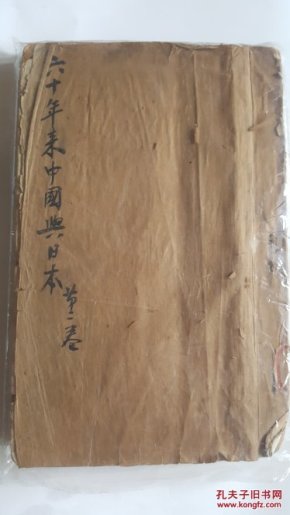 六十年来中國與日本
第一卷
孔夫子旧书网
KONGFZ.COM